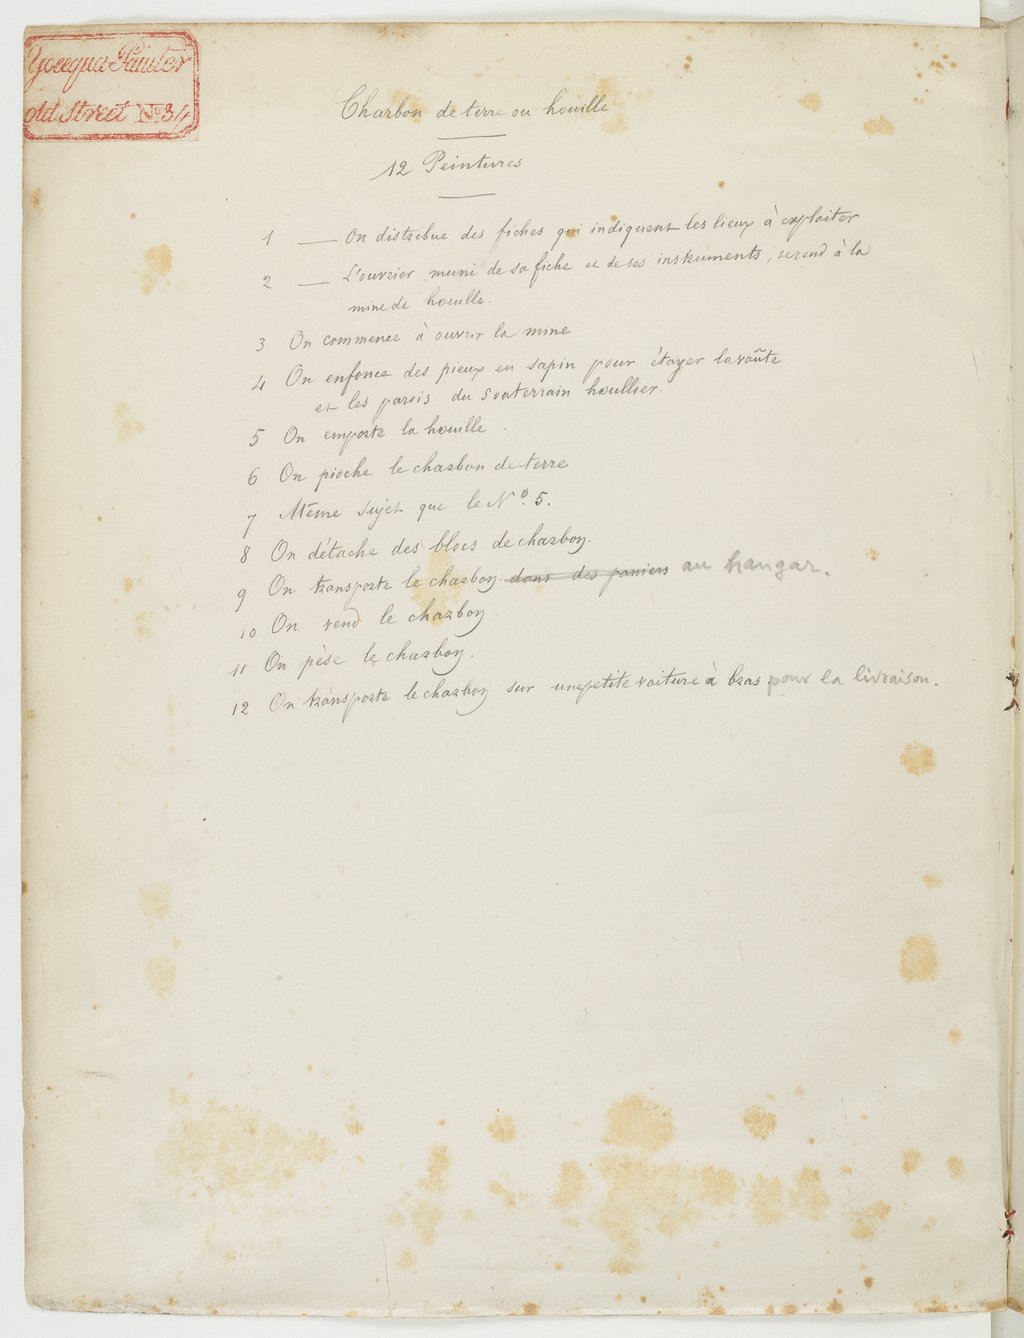 Yoeequa Painter
old Street No 34
Charbon de terre ou houille
12 Peintures
1 — On distribue des fiches qui indiquent les lieux à exploiter
2 — L'ouvrier muni de sa fiche et de ses instruments, se rend à la
mine de houille.
3. On commence à ouvrir la mine
4 On enfonce des pieux en sapin pour étayer la voûte
et les parois du souterrain houllier.
5 On emporte la houille.
6 On pioche le charbon de terre
7 Même sujet que le No. 5.
8 On détache des blocs de charbon.
9 On transporte le charbon dans des paniers au hangar.
10 On vend le charbon
11 On pèse le charbon.
12 On transporte le charbon sur une petite voiture à bras pour la livraison.